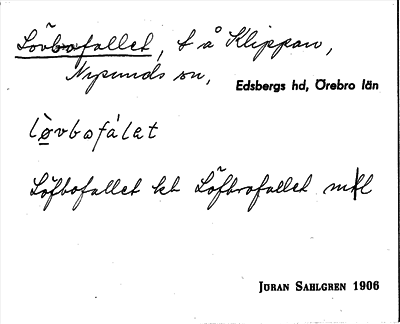 Lövbofallet, t å Klippan,
Nysunds sn,
Edsbergs hd, Örebro län
lø̀vbofálet
Löfbofallet kt Löfbrofallet mtl
JÖRAN SAHLGREN 1906